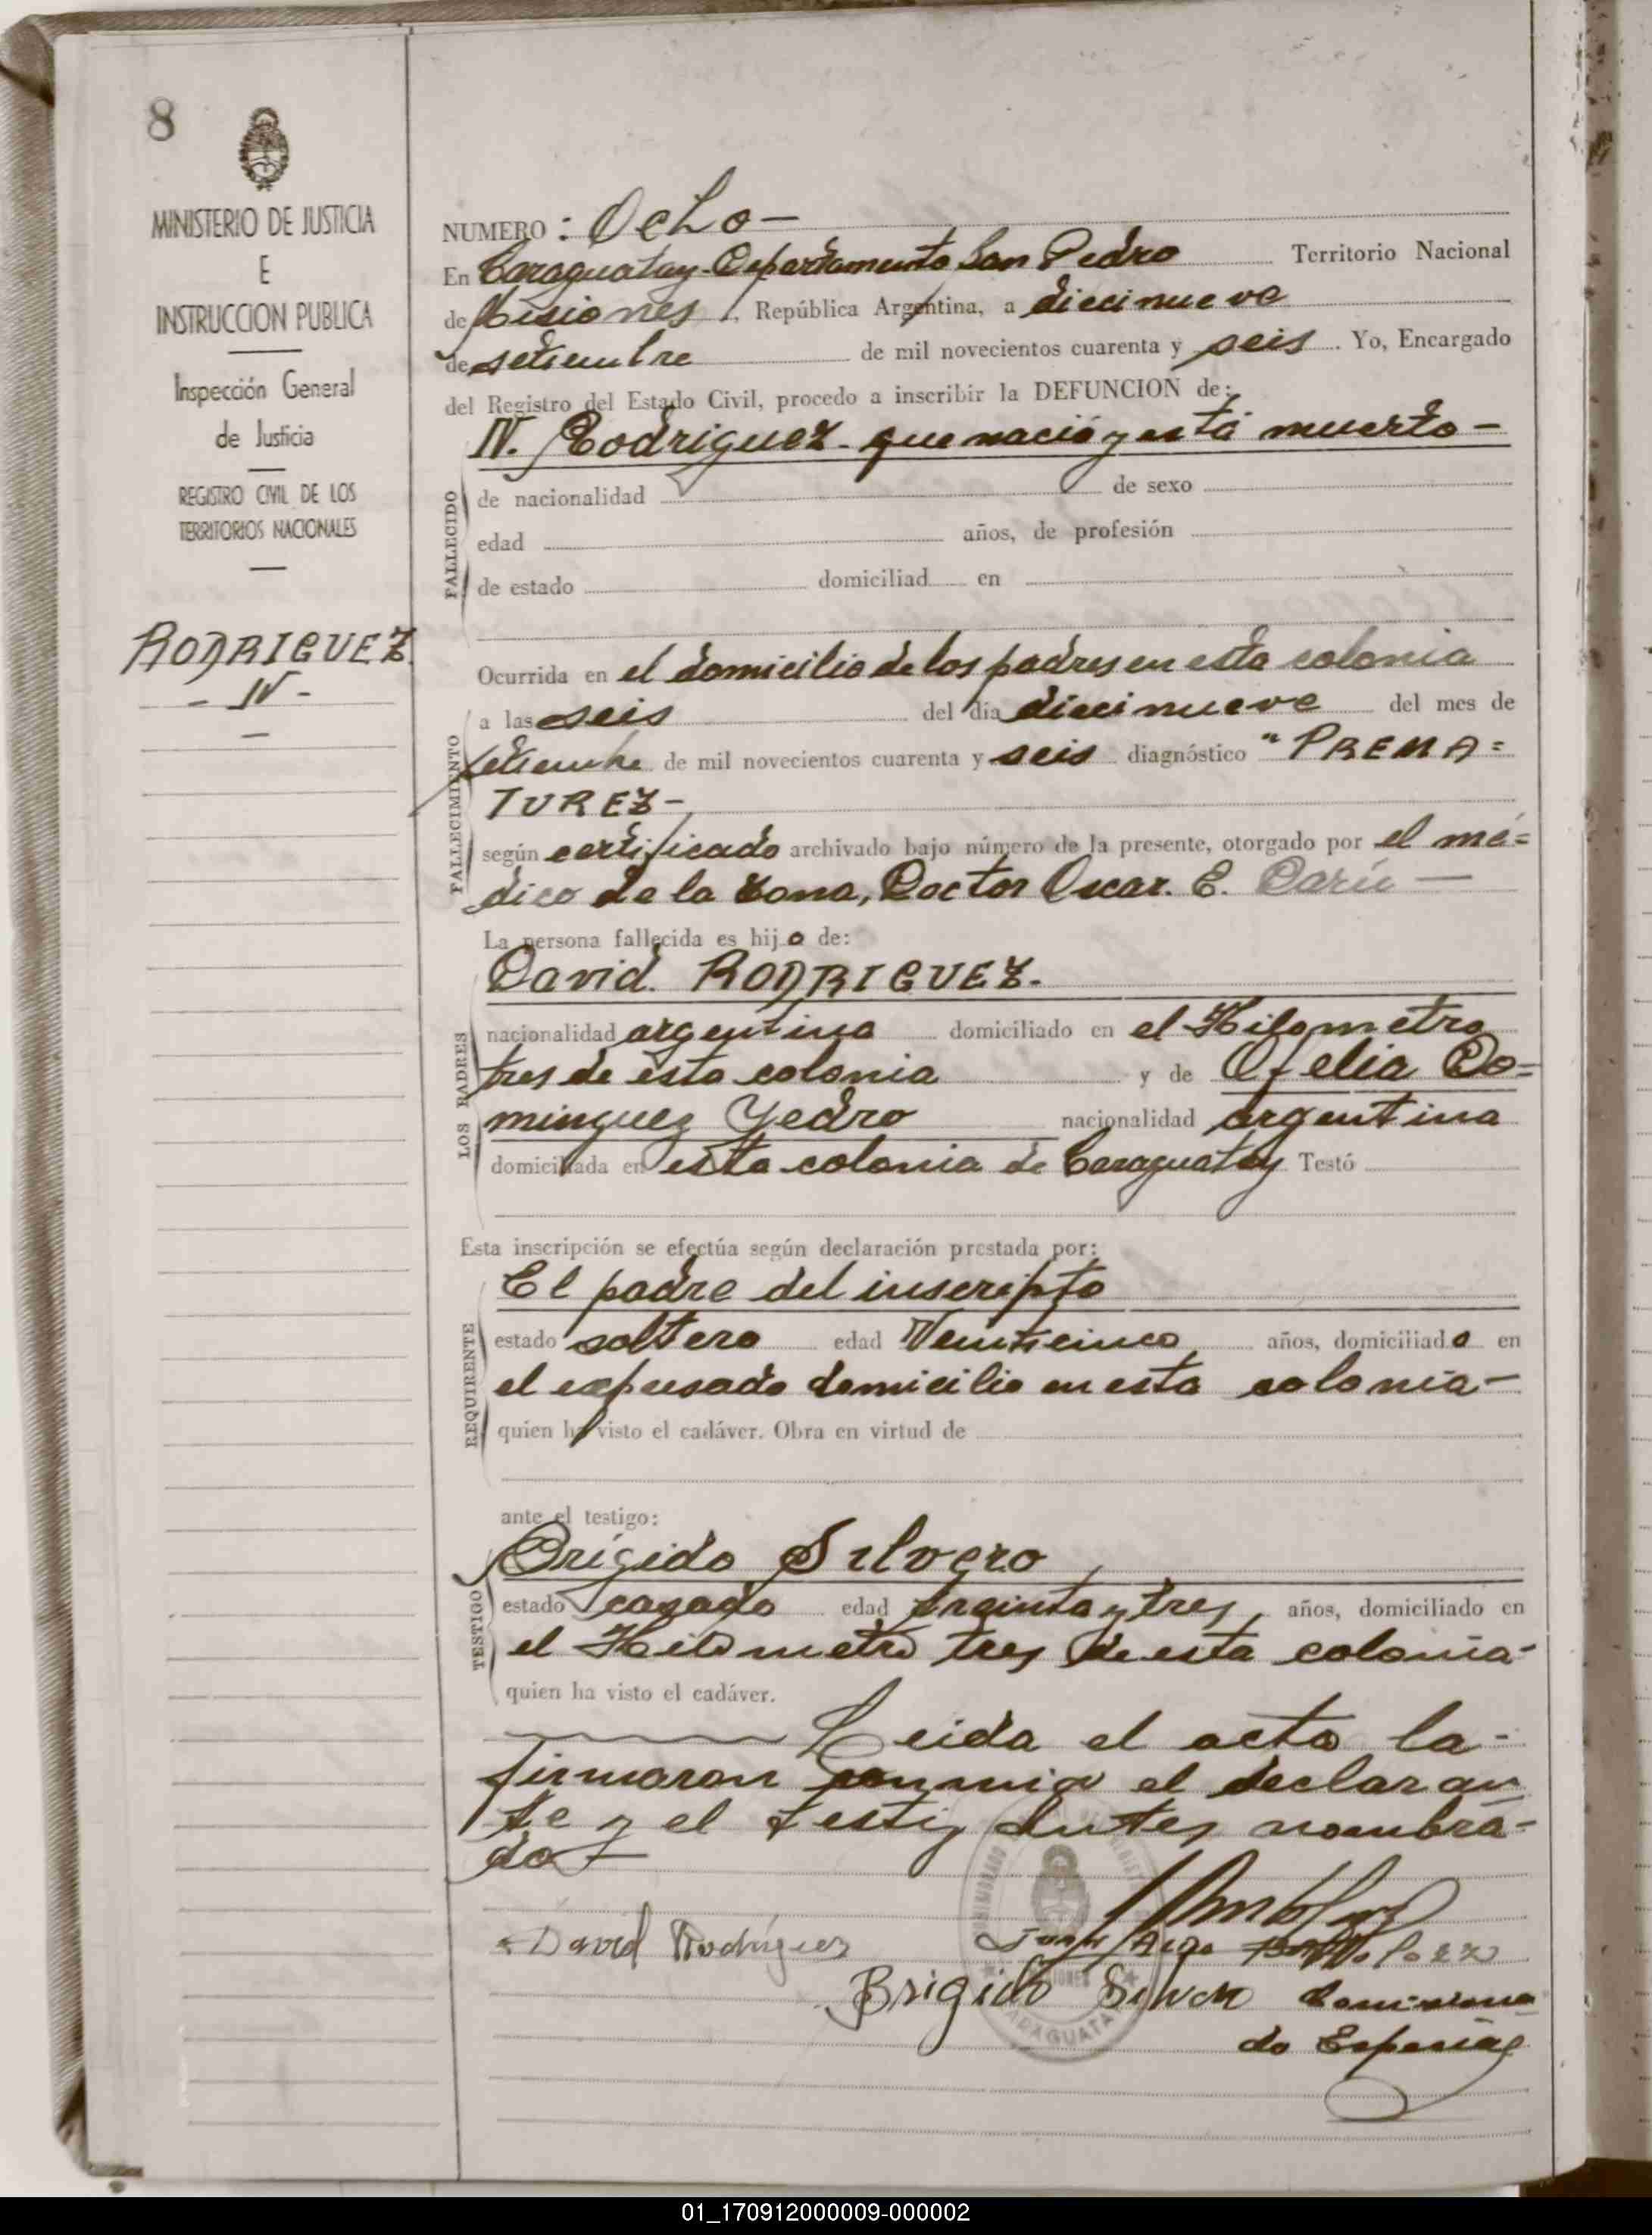 8
MINISTERIO DE JUSTICIA
E
INSTRUCCION PUBLICA
Inspección General
de Justicia
REGISTRO CIVIL DE LOS
TERRITORIOS NACIONALES
RODRIGUEZ
- N -
NUMERO: Ocho -
En Caraguatay - Departamento San Pedro Territorio Nacional
de Misiones, República Argentina, a diecinueve
de setiembre de mil novecientos cuarenta y seis. Yo, Encargado
del Registro del Estado Civil, procedo a inscribir la DEFUNCION de:
N. Rodriguez - que nació y está muerto -
FALLECIDO
de nacionalidad de sexo
edad años, de profesión
de estado domiciliad en
FALLECIMIENTO
Ocurrida en el domicilio de los padres en esta colonia
a las seis del día diecinueve del mes de
setiembre de mil novecientos cuarenta y seis diagnóstico "PREMA=
TUREZ -
según certificado archivado bajo número de la presente, otorgado por el mé=
dico de la zona, Doctor Oscar. E. Daríu —
La persona fallecida es hijo de:
LOS PADRES
David. RODRIGUEZ.
nacionalidad argentina domiciliado en el Kilometro
tres de esta colonia y de Ofelia Do=
minguez Yedro nacionalidad argentina
domiciliada en esta colonia de Caraguatay Testó
Esta inscripción se efectúa según declaración prestada por:
REQUIRENTE
El padre del inscripto
estado soltero edad Veinticinco años, domiciliado en
el expresado domicilio en esta colonia -
quien ha visto el cadáver. Obra en virtud de
ante el testigo:
TESTIGO
Brígido Silvero
estado casado edad treinta y tres, años, domiciliado en
el Kilometro tres de esta colonia -
quien ha visto el cadáver.
Leida el acta la -
firmaron conmigo el declaran
te y el testig antes nombra -
do -
David Rodríguez
Brigido Silvero Comisiona
do Especial
01_170912000009-000002